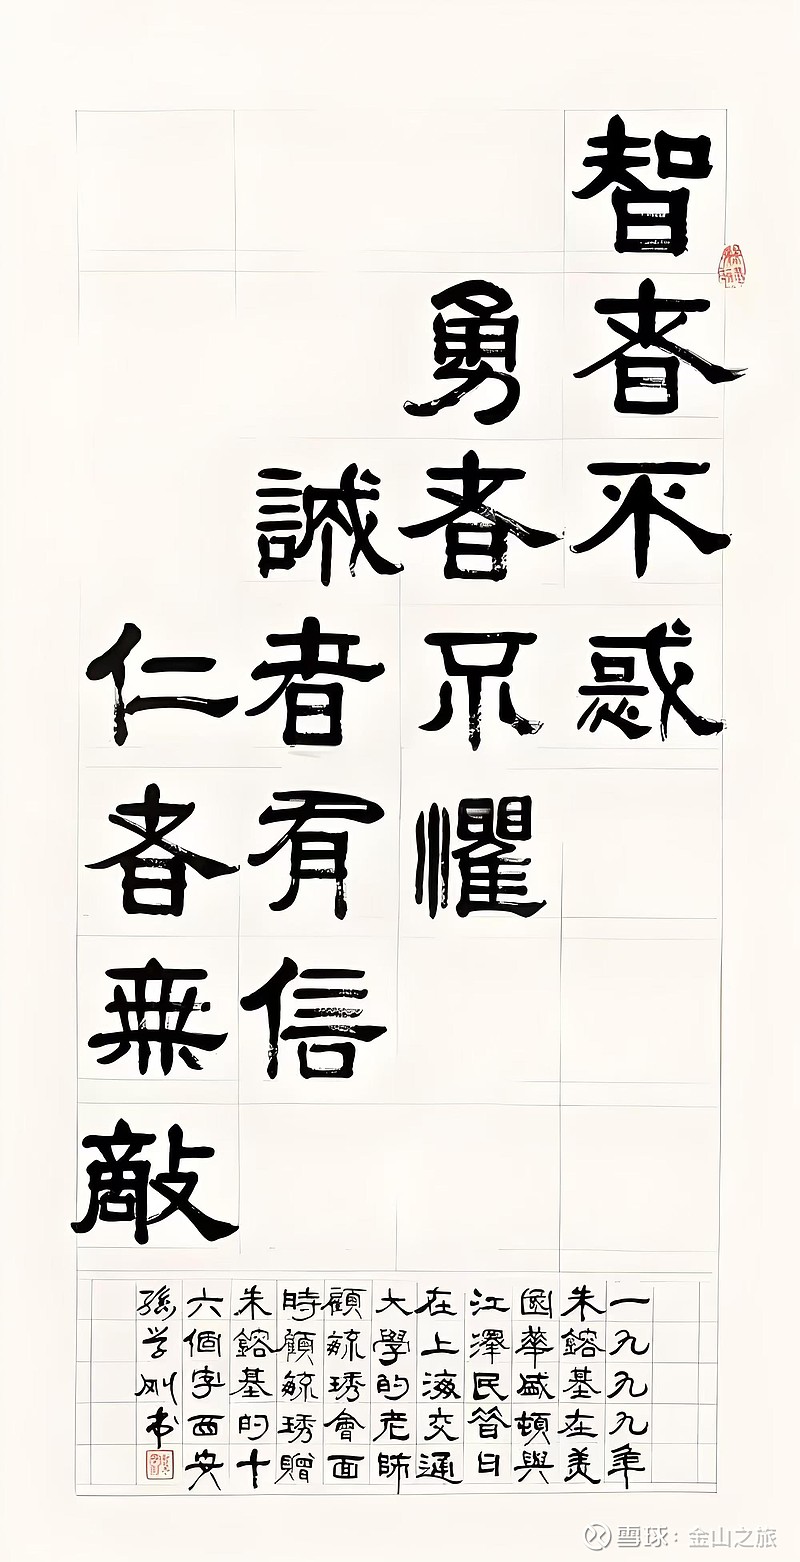 智者不惑
勇者不懼
誠者有信
仁者無敵
一九九九年
朱鎔基在美
國華盛頓與
江澤民昔日
在上海交通
大學的老師
顧毓琇會面
時顧毓琇贈
朱鎔基的十
六個字西安
孫学刚书
雪球：金山之旅